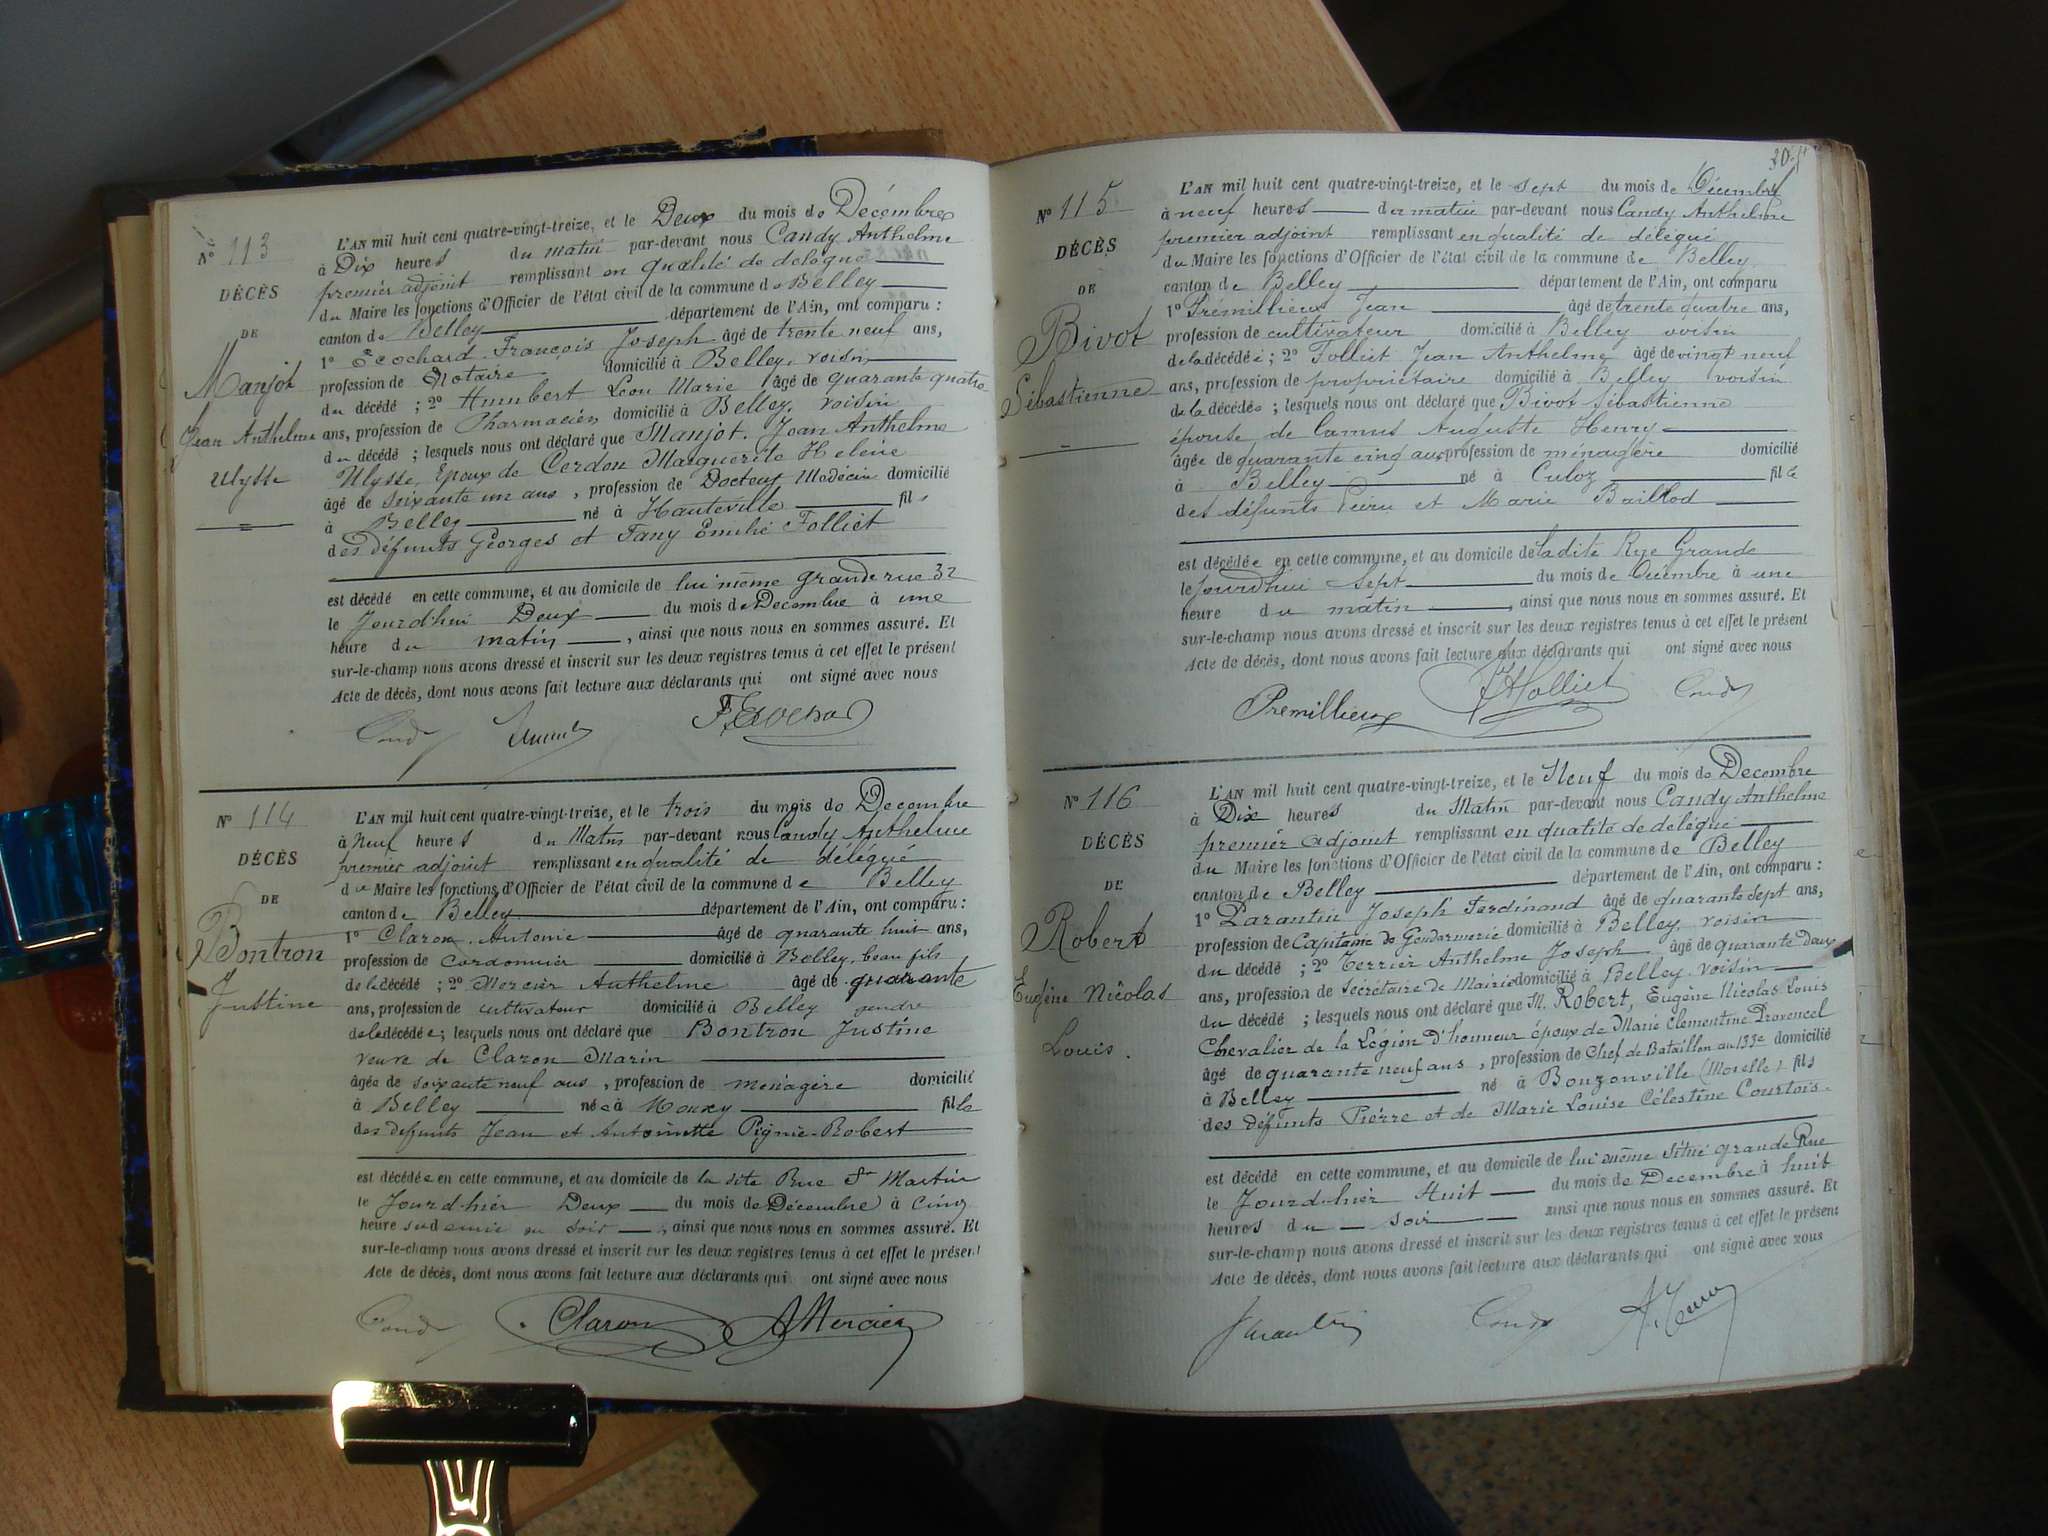 Nº 113
DÉCÈS
DE
Manjot
Jean Anthelme
Ulysse
L'AN mil huit cent quatre-vingt-treize, et le Deux du mois de Décembre
à Dix heures du matin par-devant nous Candy Anthelme
premier adjoint remplissant en qualité de délégué
du Maire les fonctions d'Officier de l'état civil de la commune de Belley
canton de Belley département de l'Ain, ont comparu :
1º Ecochard François Joseph âgé de trente neuf ans,
profession de Notaire domicilié à Belley, voisin
du décédé ; 2º Humbert Léon Marie âgé de quarante quatre
ans, profession de Pharmacien domicilié à Belley, voisin
du décédé ; lesquels nous ont déclaré que Manjot. Jean Anthelme
Ulysse, Epoux de Cerdon Marguerite Helène
âgé de soixante un ans, profession de Docteur Médecin domicilié
à Belley né à Hauteville fils
des défunts Georges et Fany Emilie Folliet
est décédé en cette commune, et au domicile de lui même grande rue 32
le Jourd'hui Deux du mois de Decembre à une
heure du matin, ainsi que nous nous en sommes assuré. Et
sur-le-champ nous avons dressé et inscrit sur les deux registres tenus à cet effet le présent
Acte de décès, dont nous avons fait lecture aux déclarants qui ont signé avec nous
Nº 114
DÉCÈS
DE
Bontron
Justine
L'AN mil huit cent quatre-vingt-treize, et le trois du mois de Decembre
à Neuf heures du Matin par-devant nous Candy Anthelme
premier adjoint remplissant en qualité de délégué
du Maire les fonctions d'Officier de l'état civil de la commune de Belley
canton de Belley département de l'Ain, ont comparu :
1º Claron Antoine âgé de quarante huit ans,
profession de cordonnier domicilié à Belley, beau fils
de la décédé ; 2º Mercier Anthelme âgé de quarante
ans, profession de cultivateur domicilié à Belley gendre
de la décédée ; lesquels nous ont déclaré que Bontron Justine
veuve de Claron Marin
âgée de soixante neuf ans, profession de ménagère domicilié
à Belley née à Mouxy fille
des défunts Jean et Antoinette Pignie-Robert
est décédée en cette commune, et au domicile de la dite Rue St Martin
le Jourd-hier Deux du mois de Décembre à cinq
heures demie du soir, ainsi que nous nous en sommes assuré. Et
sur-le-champ nous avons dressé et inscrit sur les deux registres tenus à cet effet le présent
Acte de décès, dont nous avons fait lecture aux déclarants qui ont signé avec nous
Claron AMercier
Nº 115
DÉCÈS
DE
Bivot
Sébastienne
L'AN mil huit cent quatre-vingt-treize, et le sept du mois de Décembre
à neuf heures du matin par-devant nous Candy Anthelme
premier adjoint remplissant en qualité de délégué
du Maire les fonctions d'Officier de l'état civil de la commune de Belley
canton de Belley département de l'Ain, ont comparu
1º Prémillieux Jean âgé de trente quatre ans,
profession de cultivateur domicilié à Belley voisin
de la décédée ; 2º Folliet Jean Anthelme âgé de vingt neuf
ans, profession de propriétaire domicilié à Belley voisin
de la décédée ; lesquels nous ont déclaré que Bivot Sébastienne
épouse de Camus Auguste Henry
âgée de quarante cinq ans, profession de ménagère domicilié
à Belley né à Culoz fille
des défunts Pierre et Marie Baillod
est décédée en cette commune, et au domicile de ladite Rue Grande
le jourd'hui sept du mois de Décembre à une
heure du matin, ainsi que nous nous en sommes assuré. Et
sur-le-champ nous avons dressé et inscrit sur les deux registres tenus à cet effet le présent
Acte de décès, dont nous avons fait lecture aux déclarants qui ont signé avec nous
Premillieux
Nº 116
DÉCÈS
DE
Robert
Eugène Nicolas
Louis.
L'AN mil huit cent quatre-vingt-treize, et le Neuf du mois de Decembre
à Dix heures du Matin par-devant nous Candy Anthelme
premier adjoint remplissant en qualité de délégué
du Maire les fonctions d'Officier de l'état civil de la commune de Belley
canton de Belley département de l'Ain, ont comparu :
1º Parantin Joseph Ferdinand âgé de quarante sept ans,
profession de Capitaine de Gendarmerie domicilié à Belley, voisin
du décédé ; 2º Terrier Anthelme Joseph âgé de quarante deux
ans, profession de Secrétaire de Mairie domicilié à Belley voisin
du décédé ; lesquels nous ont déclaré que M. Robert, Eugène Nicolas Louis
Chevalier de la Légion d'honneur époux de Marie Clementine Provencel
âgé de quarante neuf ans, profession de Chef de Bataillon au 133e domicilié
à Belley né à Bouzonville (Moselle) fils
des défunts Pierre et de Marie Louise Célestine Courtois
est décédé en cette commune, et au domicile de lui même situé grande Rue
le Jourd-hier Huit du mois de Decembre à huit
heures du soir ainsi que nous nous en sommes assuré. Et
sur-le-champ nous avons dressé et inscrit sur les deux registres tenus à cet effet le présent
Acte de décès, dont nous avons fait lecture aux déclarants qui ont signé avec nous